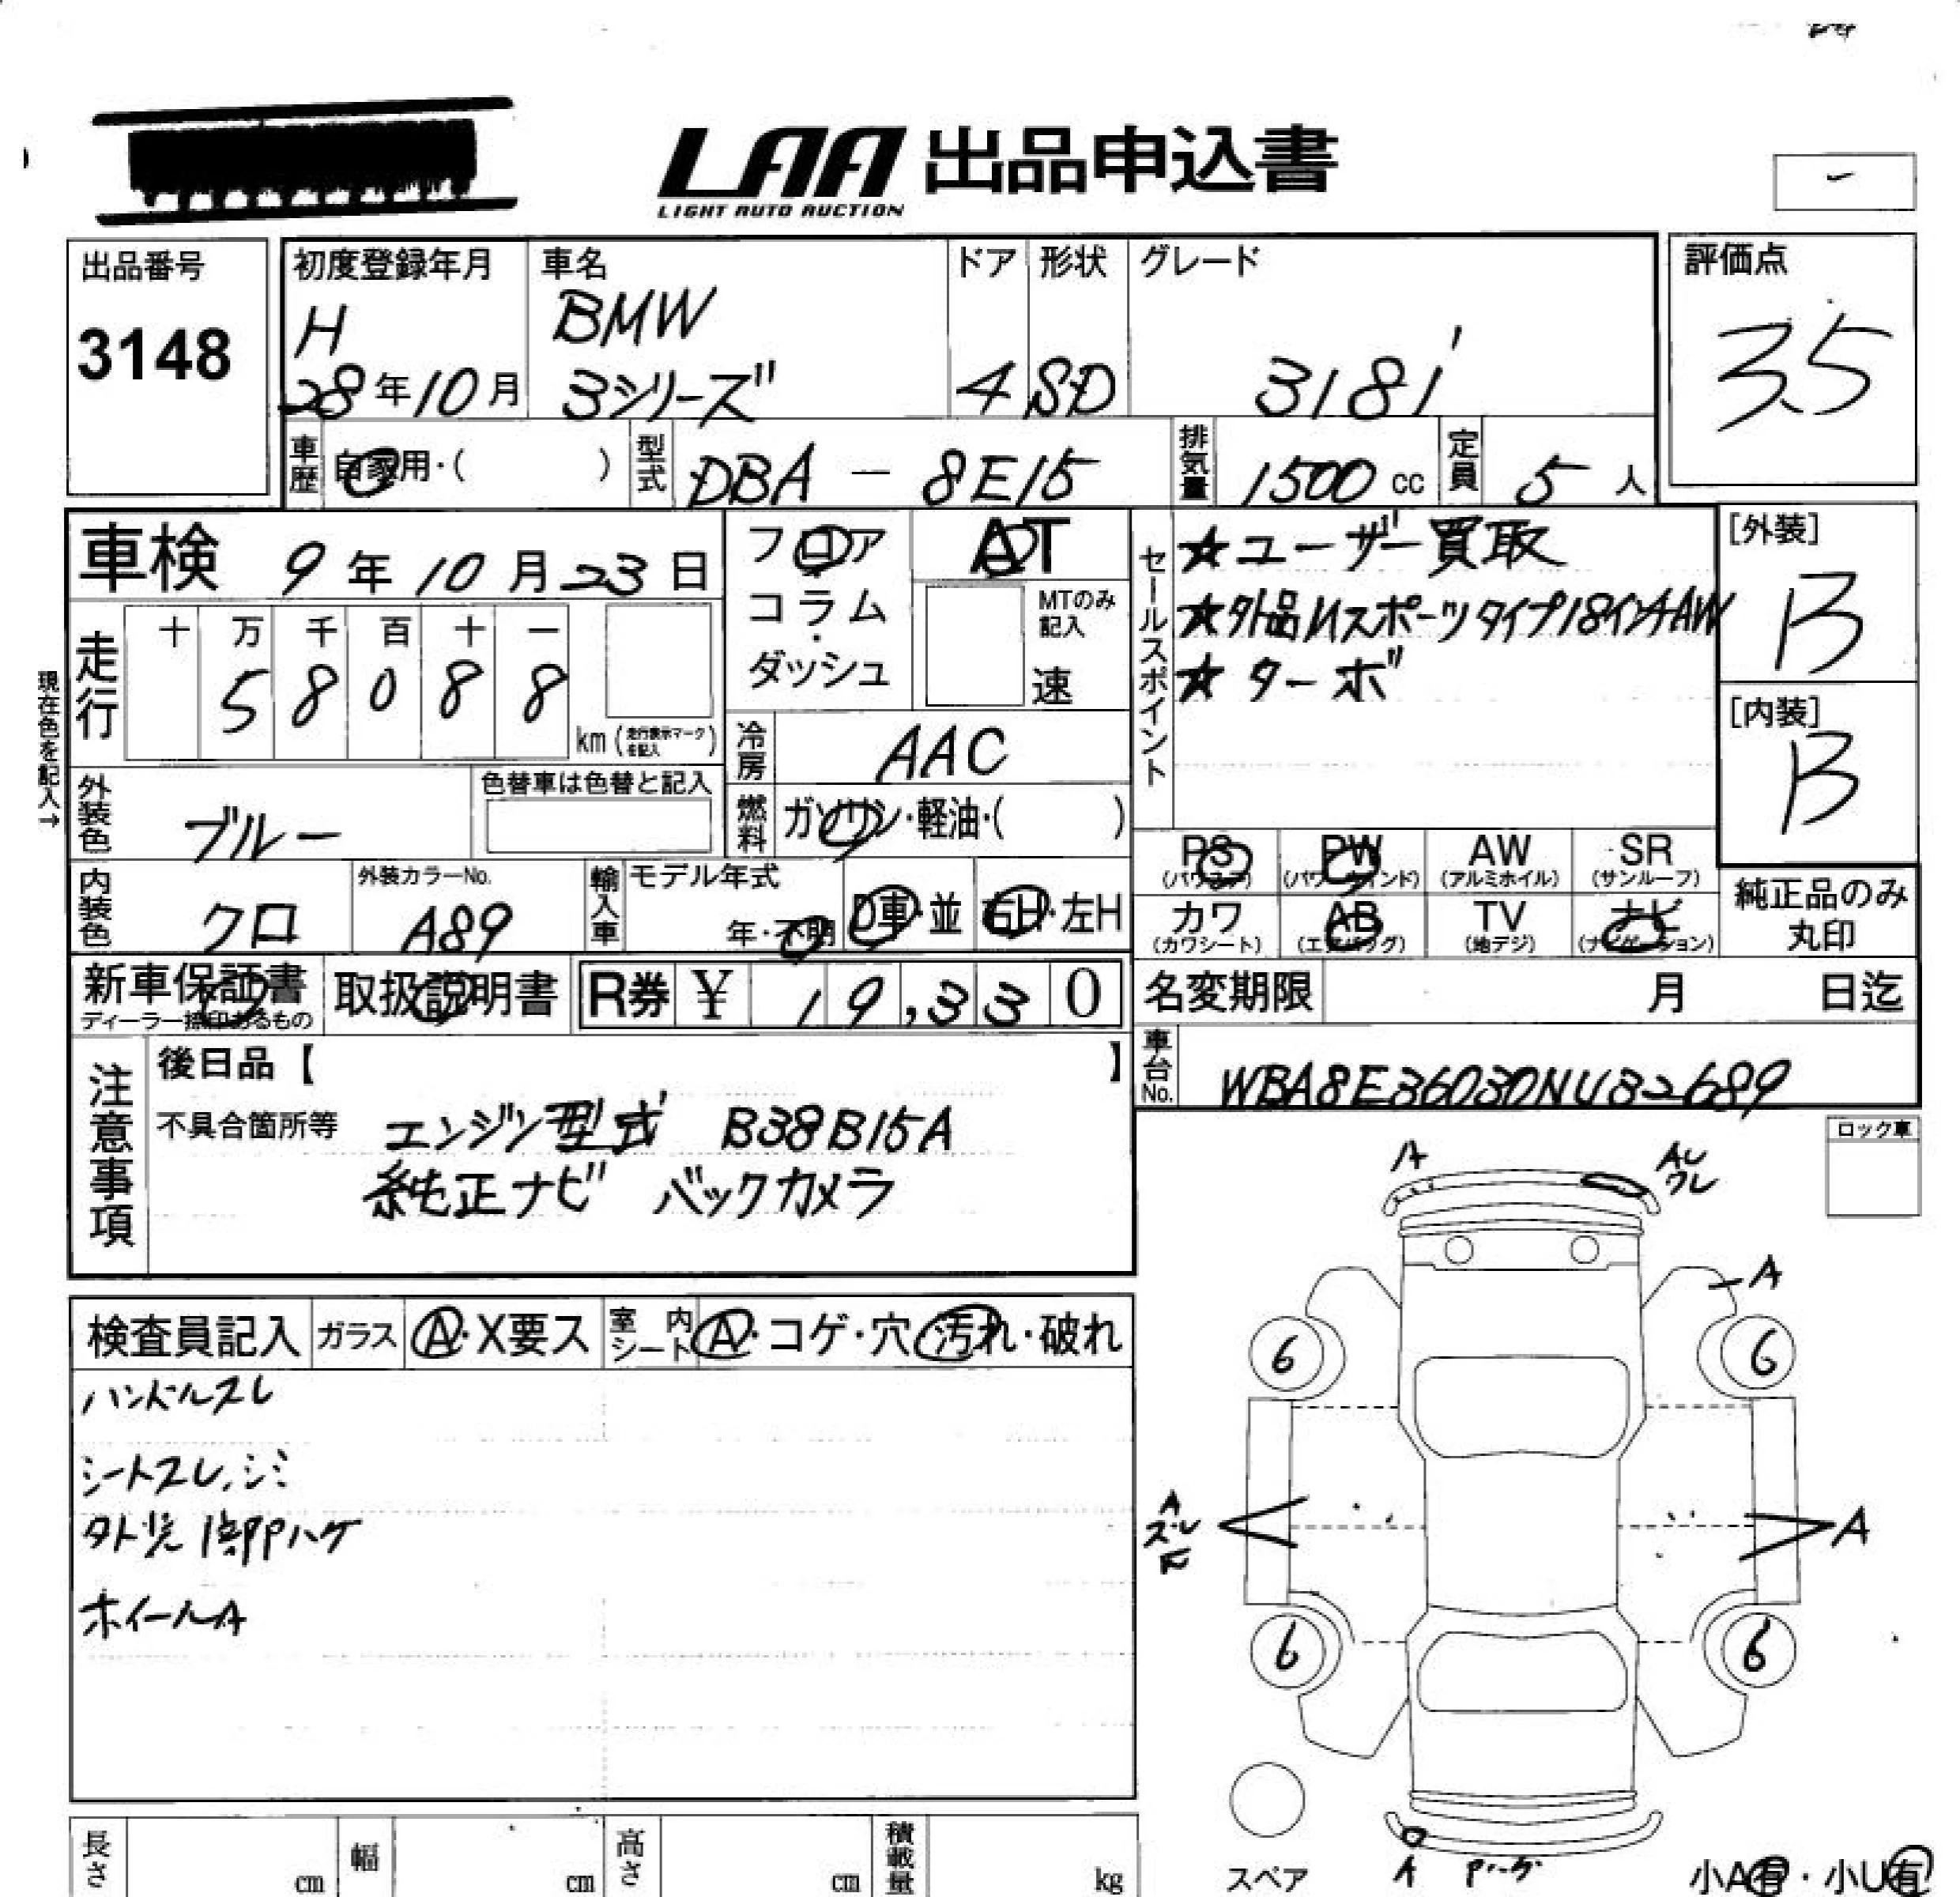 LAA 出品申込書
LIGHT AUTO AUCTION
出品番号
3148
初度登録年月
H
28年10月
車名
BMW
3シリーズ
ドア
4
形状
SD
グレード
318i
評価点
3.5
車歴 自家用・( )
型式 DBA - 8E15
排気量 1500 cc
定員 5人
車検 9年10月23日
フロア・コラム・ダッシュ
AT
MTのみ記入
速
セールスポイント
★ユーザー買取
★外品Mスポーツタイプ18インチAW
★ターボ
[外装]
B
[内装]
B
現在色を記入→
走行
十 万 千 百 十 一
5 8 0 8 8
km (走行表示マークを記入)
冷房 AAC
燃料 ガソリン・軽油・( )
外装色 ブルー
色替車は色替と記入
内装色 クロ
外装カラーNo.
A89
輸入車 モデル年式
年・不明
D車・並
右H・左H
PS
(パワステ)
PW
(パワーウインド)
AW
(アルミホイル)
SR
(サンルーフ)
カワ
(カワシート)
AB
(エアバッグ)
TV
(地デジ)
ナビ
(ナビゲーション)
純正品のみ
丸印
新車保証書
ディーラー捺印あるもの
取扱説明書
R券 ¥ 19,330
名変期限 月 日迄
車台No. WBA8E36030NU82689
注意事項
後日品【 】
不具合箇所等
エンジン型式 B38B15A
純正ナビ バックカメラ
ロック車
A
AU
ワレ
A
6
6
A
ズレ
A
6
6
検査員記入
ガラス A・X要ス
室内シート A・コゲ・穴・汚れ・破れ
ハンドルスレ
シートスレ、シミ
外装1部Pハゲ
ホイールA
長さ cm
幅 cm
高さ cm
積載量 kg
スペア
A
Pハゲ
小A有・小U有